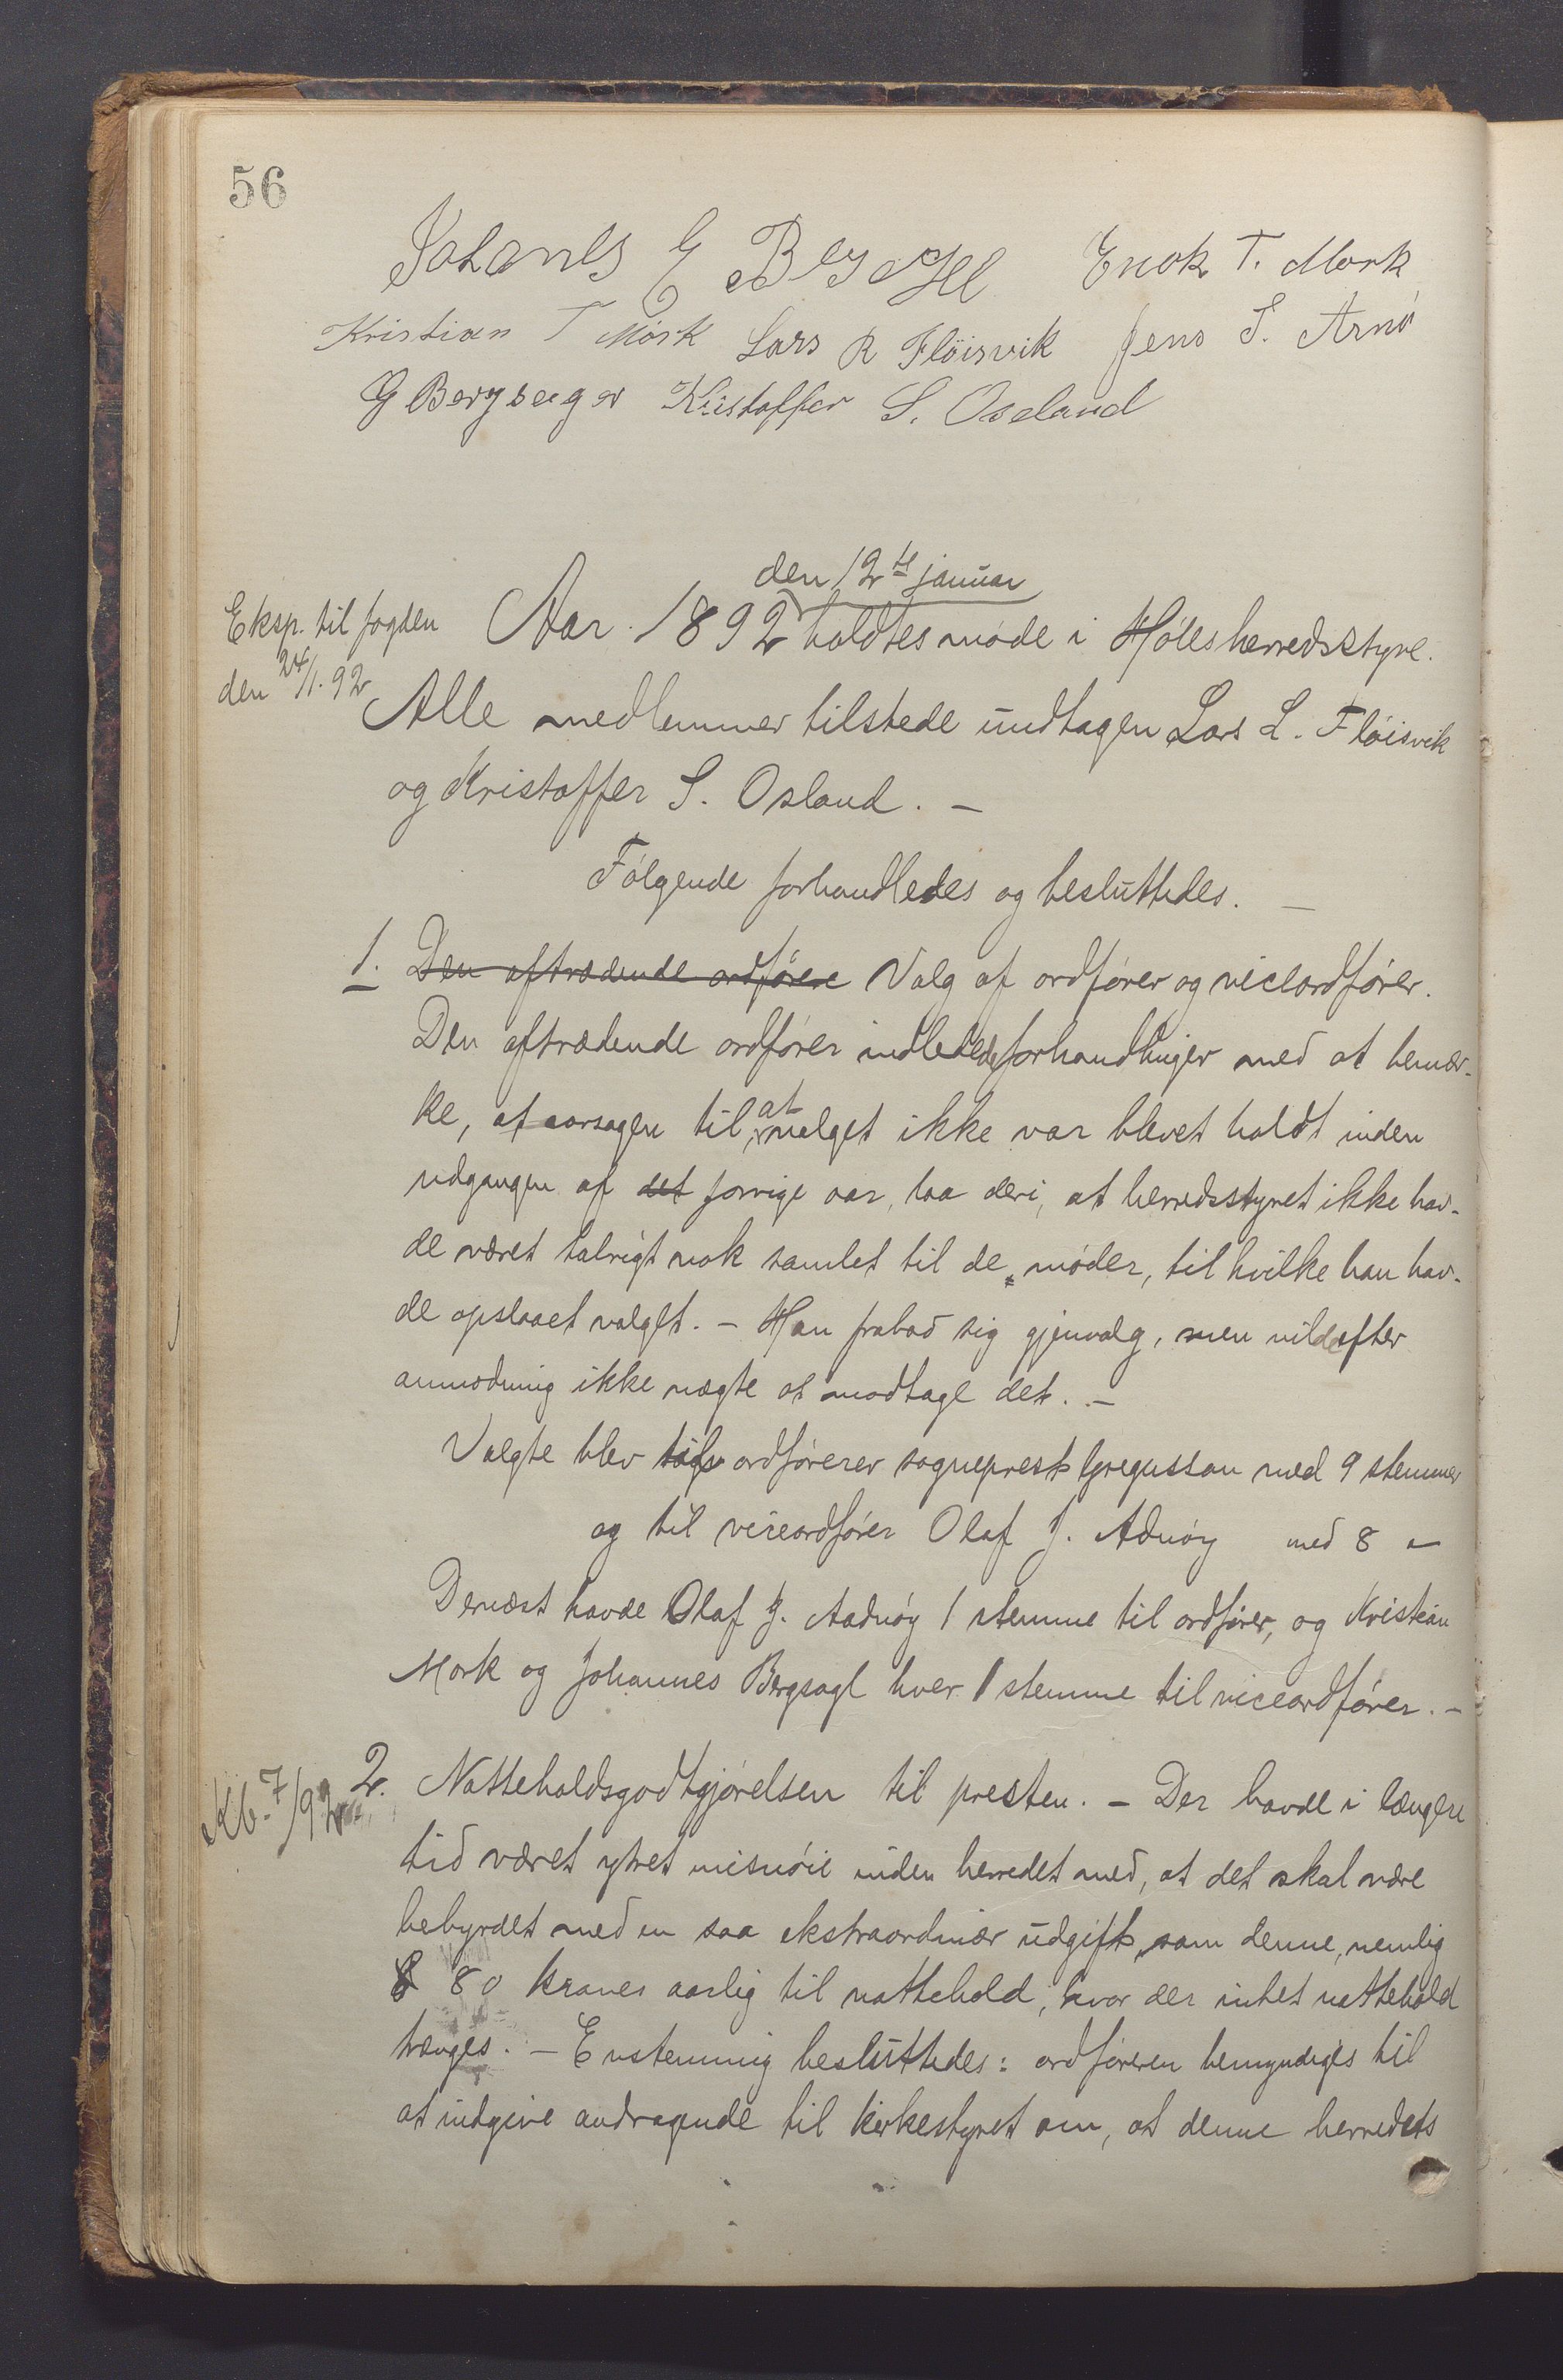 56
Johanes E Enok T. Mork
Kristian T Mörk Lars R Flöisvik Jens S. Arnö
G Bergsager Kristoffer S. Oseland
den 12te januar
Eksp. til fogden
den 24/1. 92
Aar 1892 holdtes møde i Höles herredsstyre.
Alle medlemmer tilstede undtagen Lars L. Flöisvik
og Kristoffer S. Osland. –
Fölgende forhandledes og besluttedes. –
1. Den aftrædende ordförere Valg af ordfører og viceordfører.
Den aftrædende ordfører indledede forhandlinger med at bemær-
ke, at aarsagen til, at valget ikke var blevet holdt inden
udgangen af det forrige aar, laa deri, at herredsstyret ikke hav-
de været talrigt nok samlet til de møder, til hvilke han hav-
de opslaaet valget. – Han frabad sig gjenvalg, men vilde efter
anmodning ikke nægte at modtage det. –
Valgte blev ordförerer sogneprest Gregussan med 9 stemmer
og til viceordfører Olaf J. Adnöy med 8 "
Dernæst havde Olaf J. Aadnöy 1 stemme til ordfører, og Kristian
Mork og Johannes Bergsagl hver 1 stemme til viceordfører. –
Kb. 7/92
2. Natteholdsgodtgjörelsen til presten. – Der havde i længere
tid været ytret misnöie inden herredet med, at det skal være
bebyrdet med en saa ekstraordinær udgift, som denne, nemlig
8 80 kroner aarlig til nattehold, hvor der intet nattehold
trænges. – Enstemmig besluttedes: ordföreren bemyndiges til
at indgive andragende til kirkestyret om, at denne herredets